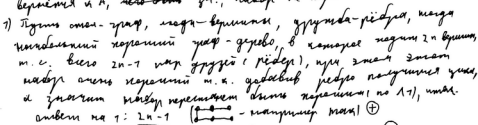 вернемся к А,
7) Пусть стол-граф, люди-вершины, дружба-рёбра, тогда
наибольший хороший граф-дерево, в которое входит 2n вершин,
т.е. всего 2n-1 пар друзей (рёбер), при этом этот
набор очень хороший т.к. добавив ребро получится цикл,
а значит набор перестанет быть хорошим (по Л1), итак.
ответ на 1: 2n-1 ( - например так) +